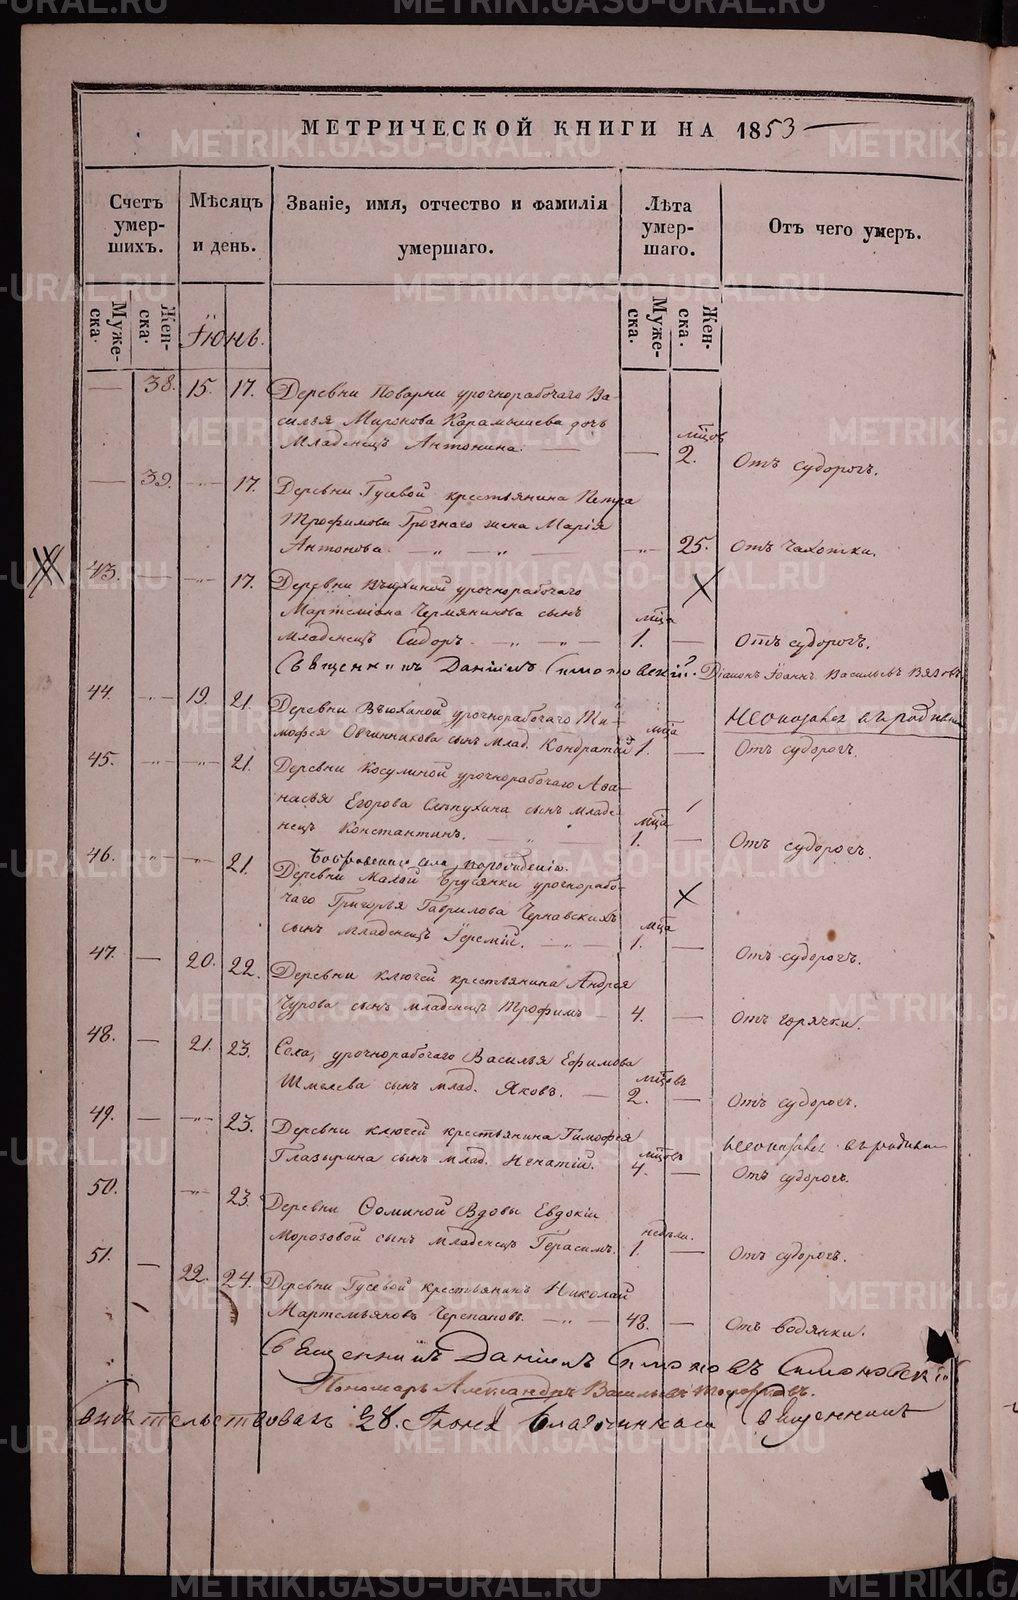 МЕТРИЧЕСКОЙ КНИГИ НА 1853
Счетъ умер- шихъ.
Мѣсяцъ и день.
Званіе, имя, отчество и фамилія умершаго.
Лѣта умер- шаго.
Отъ чего умеръ.
Муже- ска.
Жен- ска.
Іюнь.
Муже- ска.
Жен- ска.
— 38. 15. 17. Деревни Поварни урочнорабочаго Ва-
силья Миронова Карамышева дочь
Младенецъ Антонина. — — мцовъ 2. Отъ судорогъ.
— 39. -„- 17. Деревни Гусевой крестьянина Петра
Трофимова жена Марія
Антонова. -„- 25. Отъ чахотки.
43. — -„- 17. Деревни Вьюхиной урочнорабочаго
Мартеміана Чермянинова сынъ
младенецъ Сидоръ. мца 1. — Отъ судорогъ.
Священникъ Даніилъ Симоновскій. Діаконъ Іоаннъ Васильевъ
44. -„- 19. 21. Деревни Вьюхиной урочнорабочаго Ти-
мофея Овчинникова сынъ млад. Кондратій мца 1. — Отъ судорогъ.
45. -„- — 21. Деревни Косулиной урочнорабочаго Афа-
насья Егорова Слѣпухина сынъ младе-
нецъ Константинъ. мца 1. — Отъ судорогъ.
46. -„- — 21. Бобровскаго села
Деревни Малой Брусянки урочнорабо-
чаго Григорья Гаврилова Чернавскихъ
сынъ младенецъ Іеремій. мца 1. — Отъ судорогъ.
47. — 20. 22. Деревни Ключей крестьянина Андрея
Чурова сынъ младенецъ Трофимъ — 4. — Отъ горячки.
48. — 21. 23. Села, урочнорабочаго Василья Ефимова
Шмелева сынъ млад. Яковъ. — мцовъ 2. — Отъ судорогъ.
49. — -„- 23. Деревни Ключей крестьянина Тимофея
Глазырина сынъ млад. Игнатій. мцовъ 4. — Отъ судорогъ.
50. -„- 23. Деревни Фоминой Вдовы Евдокіи
Морозовой сынъ младенецъ Герасимъ. недѣли. 1. — Отъ судорогъ.
51. — 22. 24. Деревни Гусевой крестьянинъ Николай
Мартемьяновъ Черепановъ. — 48. — Отъ водянки.
Священникъ Даніилъ Симоновъ Симоновскій
Пономарь Александръ Васильевъ
Свидѣтельствовалъ 28. Іюня Благочинный Священникъ
METRIKI.GASO-URAL.RU